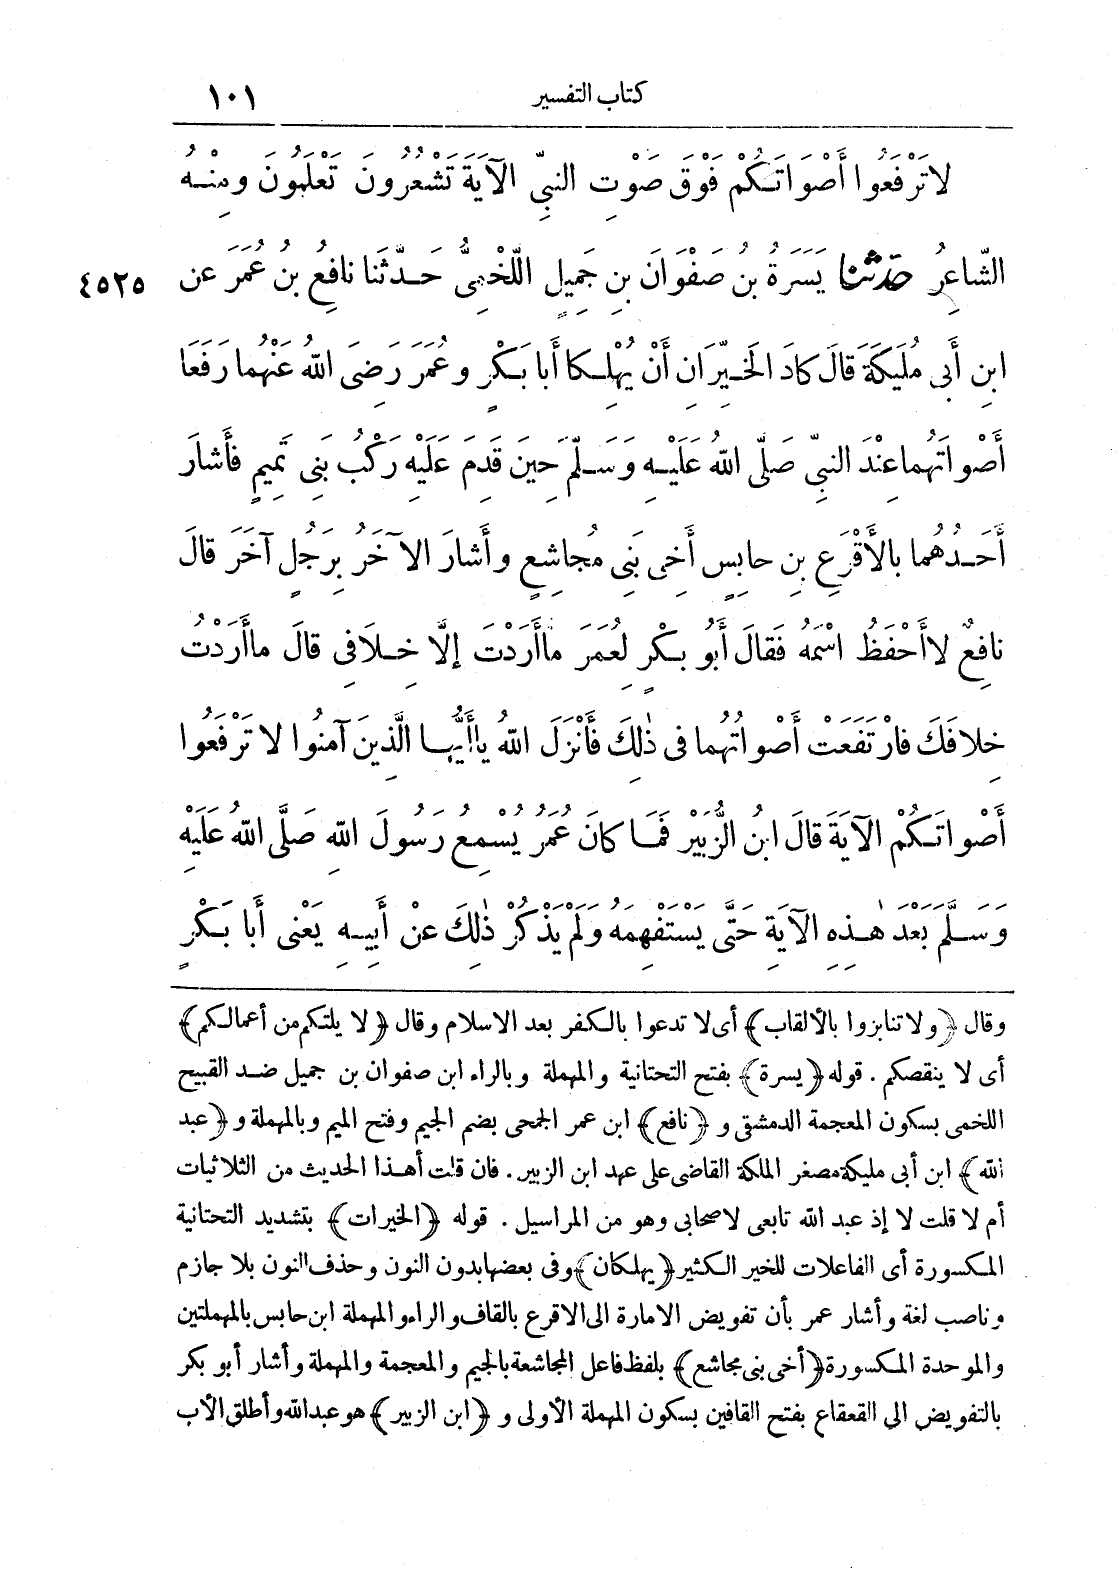 كتاب التفسير ١٠١
لاتَرْفَعُوا أَصْوَاتَكُمْ فَوْقَ صَوْتِ النبيِّ الآيَةَ تَشْعُرُونَ تَعْلَمُونَ ومِنْهُ
الشَّاعِرُ حدثنا يَسَرَةُ بنُ صَفْوَانَ بنِ جَمِيلٍ اللَّخْمِىُّ حَدَّثَنا نافِعُ بنُ عُمَرَ عن ٤٥٢٥
ابنِ أَبى مُلَيْكَةَ قال كادَ الخَيِّرَانِ أَنْ يُهْلِكا أَبا بَكْرٍ وعُمَرَ رَضِىَ اللهُ عَنْهُما رَفَعا
أَصْواتَهُما عِنْدَ النبيِّ صَلَّى اللهُ عَلَيْهِ وَسَلَّمَ حِينَ قَدِمَ عَلَيْهِ رَكْبُ بَنِى تَمِيمٍ فأَشارَ
أَحَدُهُما بالأَقْرَعِ بنِ حابِسٍ أَخِى بَنِى مُجاشِعٍ وأَشارَ الآخَرُ بِرَجُلٍ آخَرَ قالَ
نافِعٌ لاأَحْفَظُ اسْمَهُ فَقالَ أَبُو بَكْرٍ لِعُمَرَ ماأَرَدْتَ إِلَّا خِلافِى قالَ ماأَرَدْتُ
خِلافَكَ فارْتَفَعَتْ أَصْواتُهُما فى ذٰلِكَ فأَنْزَلَ اللهُ ياأَيُّها الَّذِينَ آمنُوا لا تَرْفَعُوا
أَصْواتَكُمْ الآيَةَ قالَ ابنُ الزُّبَيْرِ فَمَا كانَ عُمَرُ يُسْمِعُ رَسُولَ اللهِ صَلَّى اللهُ عَلَيْهِ
وَسَلَّمَ بَعْدَ هٰذِهِ الآيَةِ حَتَّى يَسْتَفْهِمَهُ ولَمْ يَذْكُرْ ذٰلِكَ عنْ أَبِيهِ يَعْنِى أَبا بَكْرٍ
وقال ﴿ولا تنابزوا بالألقاب﴾ أى لا تدعوا بالكفر بعد الاسلام وقال ﴿لا يلتكم من أعمالكم﴾
أى لا ينقصكم . قوله ﴿يسرة﴾ بفتح التحتانية والمهملة وبالراء ابن صفوان بن جميل ضد القبيح
اللخمى بسكون المعجمة الدمشقى و ﴿نافع﴾ ابن عمر الجمحى بضم الجيم وفتح الميم وبالمهملة و ﴿عبد
الله﴾ ابن أبى مليكة مصغر الملكة القاضى على عهد ابن الزبير . فان قلت أهذا الحديث من الثلاثيات
أم لا قلت لا إذ عبد الله تابعى لاصحابى وهو من المراسيل . قوله ﴿الخيرات﴾ بتشديد التحتانية
المكسورة أى الفاعلات للخير الكثير ﴿يهلكان﴾ وفى بعضها بدون النون وحذف النون بلا جازم
وناصب لغة وأشار عمر بأن تفويض الامارة الى الاقرع بالقاف والراء والمهملة ابن حابس بالمهملتين
والموحدة المكسورة ﴿أخى بنى مجاشع﴾ بلفظ فاعل المجاشعة بالجيم والمعجمة والمهملة وأشار أبو بكر
بالتفويض الى القعقاع بفتح القافين بسكون المهملة الأولى و ﴿ابن الزبير﴾ هو عبدالله وأطلق الأب